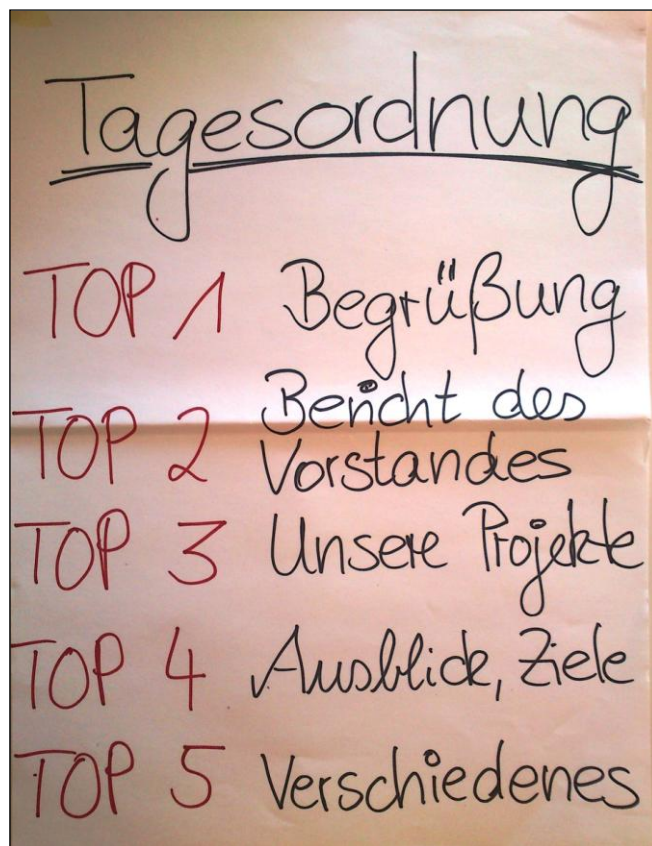 Tagesordnung
TOP 1 Begrüßung
TOP 2 Bericht des
Vorstandes
TOP 3 Unsere Projekte
TOP 4 Ausblick, Ziele
TOP 5 Verschiedenes